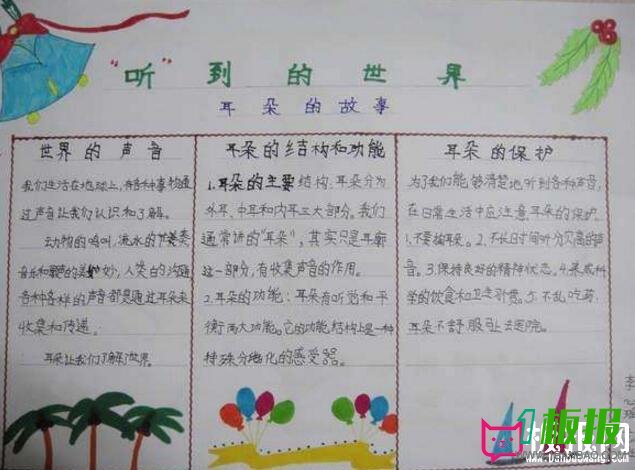 “听”到的世界
耳朵的故事
世界的声音
我们生活在地球上，有各种事物通
过声音让我们认识和了解。
动物的鸣叫，流水的节奏
音乐和 的美妙，人类的沟通
各种各样的声音都是通过耳朵来
收集和传递。
耳朵让我们了解了世界。
耳朵的结构和功能
1.耳朵的主要结构：耳朵分为
外耳、中耳和内耳三大部分。我们
通常讲的“耳朵”，其实只是耳廓
这一部分，有收集声音的作用。
2.耳朵的功能：耳朵有听觉和平
衡两大功能。它的功能结构上是一种
特殊分化的感受器。
耳朵的保护
为了我们能够清楚地听到各种声音，
在日常生活中应注意耳朵的保护
1.不要掏耳朵。2.不长时间听分贝高的声
音。3.保持良好的精神状态。4.养成科
学的饮食和卫生习惯。5.不乱吃药，
耳朵不舒服马上去医院。
李
板报